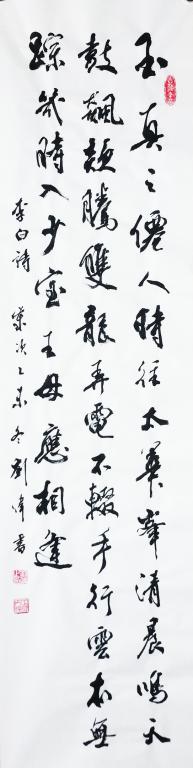 玉真之僊人時往太華峯清晨鳴天
鼓飆欻騰雙龍弄電不輟手行雲本無
蹤幾時入少室王母應相逢
李白詩 歲次乙未冬 劉偉書